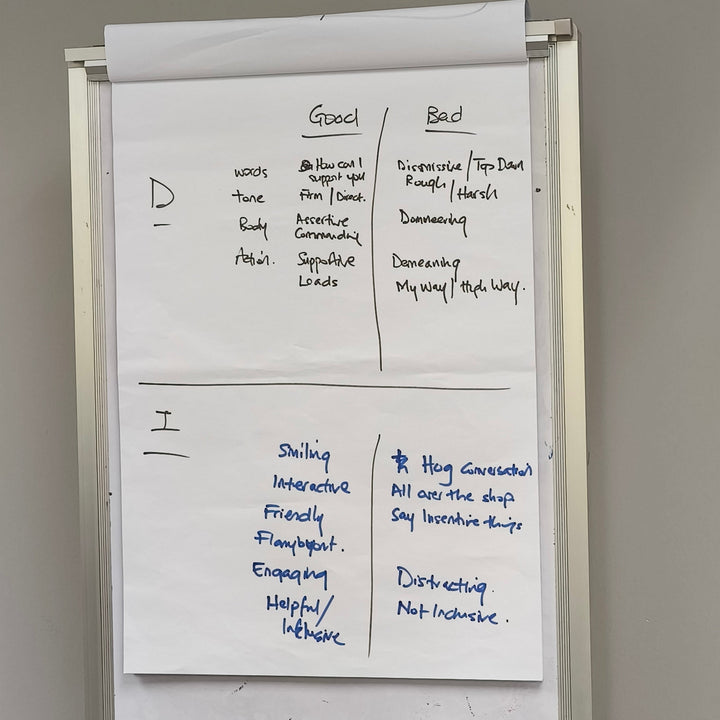 Good Bad
D
words How can I support you Dissmissive / Top Down
Rough / Harsh
tone Firm / Direct.
Body Assertive Commanding Domneering
Action. Supportive Demeaning
Loads My Way / High Way.
I
Smiling Hog Conversation
Interactive All over the shop
Friendly Say Insentive things
Engaging Distracting.
Helpful / Inclusive Not Inclusive.